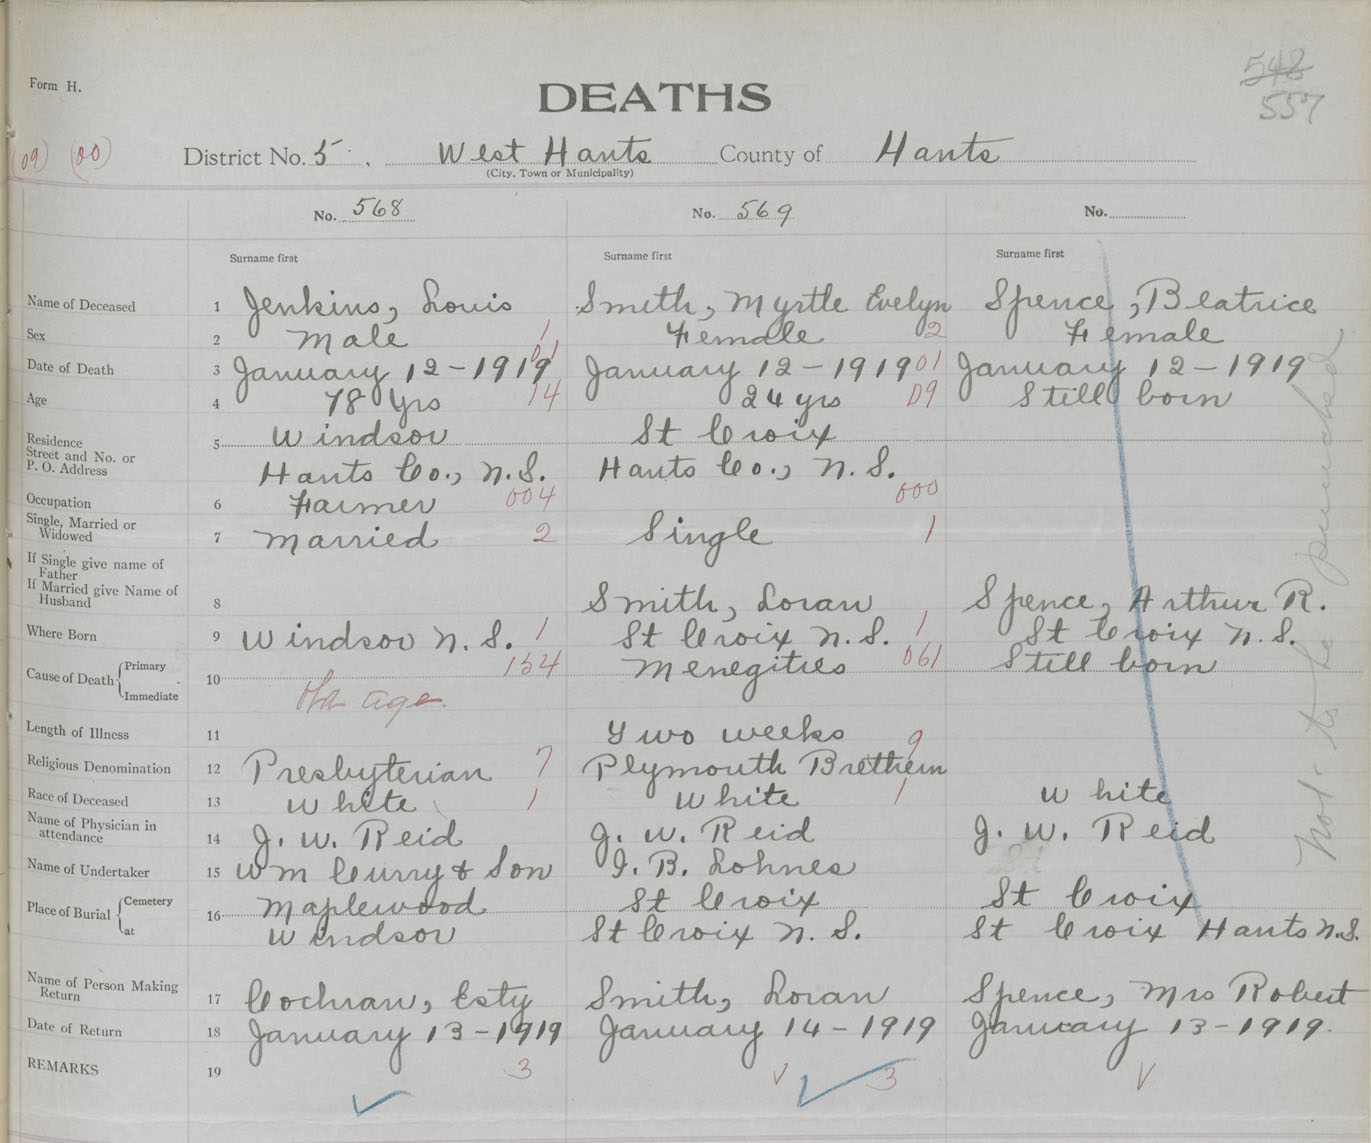 548
557
Form H.
DEATHS
(09) (00)
District No. 5. West Hants County of Hants
(City, Town or Municipality)
No. 568 No. 569 No.
Surname first Surname first Surname first
Name of Deceased 1 Jenkins, Louis Smith, Myrtle Evelyn Spence, Beatrice
Sex 2 Male 1 Female 2 Female
Date of Death 3 January 12-1919 01 January 12-1919 01 January 12-1919
Age 4 78 yrs 14 24 yrs 09 Still born
Residence 5 Windsor St Croix
Street and No. or
P. O. Address Hants Co., N.S. Hants Co., N.S.
Occupation 6 Farmer 004 000
Single, Married or
Widowed 7 Married 2 Single 1
If Single give name of
Father
If Married give Name of
Husband 8 Smith, Loran Spence, Arthur R.
Where Born 9 Windsor N.S. 1 St Croix N.S. 1 St Croix N.S.
Cause of Death Primary 10 154 Menegities 061 Still born
Immediate Old age.
Length of Illness 11 Two weeks
Religious Denomination 12 Presbyterian 7 Plymouth Brethern 9
Race of Deceased 13 White 1 White 1 White
Name of Physician in
attendance 14 J. W. Reid J. W. Reid J. W. Reid
Name of Undertaker 15 Wm Curry & Son I. B. Lohnes
Place of Burial Cemetery 16 Maplewood St Croix St Croix
at Windsor St Croix N.S. St Croix Hants N.S.
Name of Person Making
Return 17 Cochran, Esty Smith, Loran Spence, Mrs Robert
Date of Return 18 January 13-1919 January 14-1919 January 13-1919.
REMARKS 19 3 3
Not to be punched